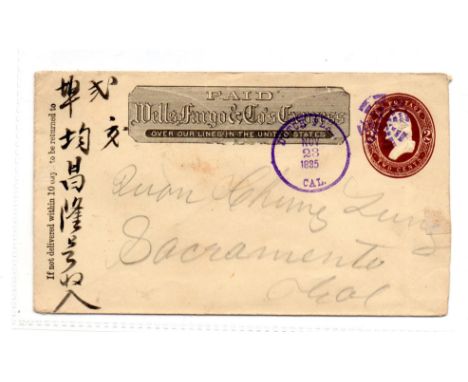 PAID
Wells Fargo & Co's Express
OVER OUR LINES IN THE UNITED STATES
NOV
23
1885
CAL.
TWO CENTS
If not delivered within 10 days, to be returned to
弍
埠均昌隆号收入
Quon Chung Lung
Sacramento
Cal